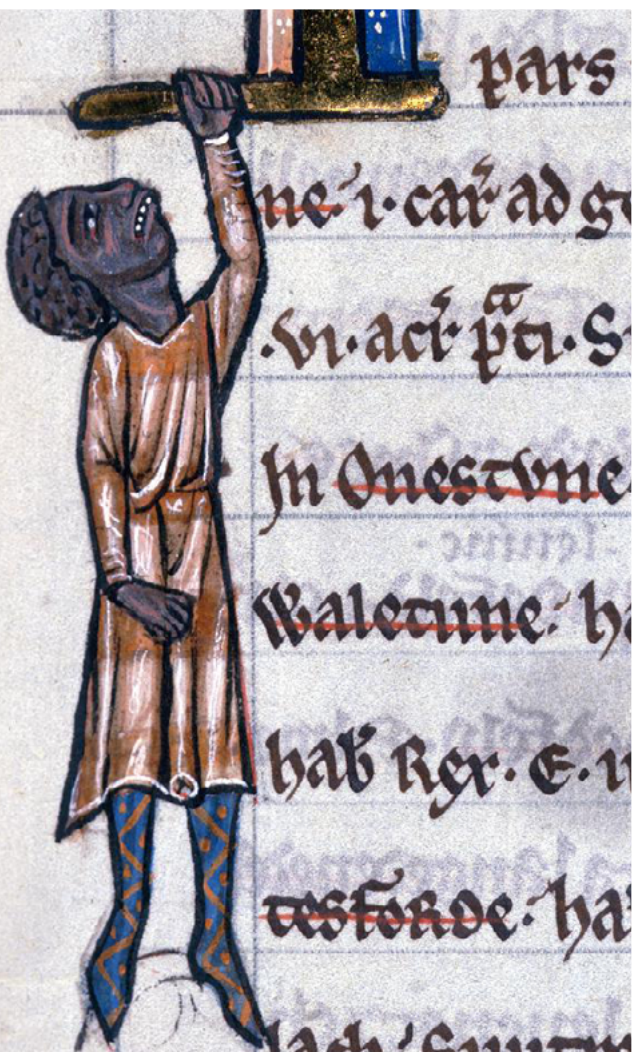 pars
ne· i· car̃ ad ge
·vi· acr̃ pͣti· S
In Onestvne
Waletune· ha
hab̃ Rex· E· i
tesforde· ha